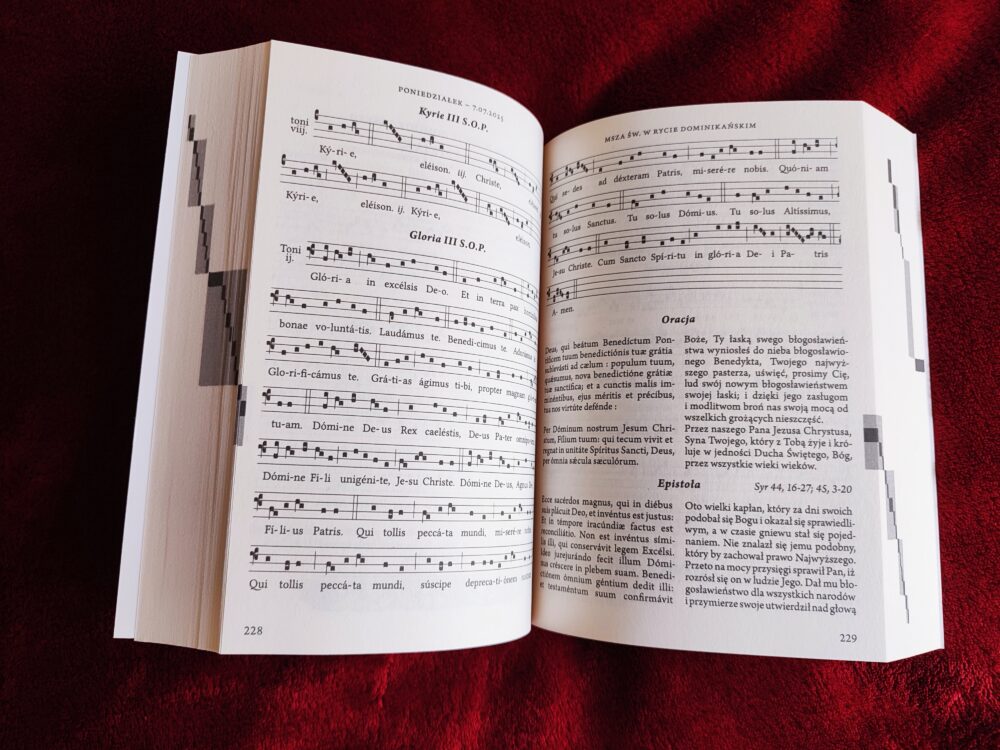 PONIEDZIAŁEK – 7.07.2025
Kyrie III S.O.P.
toni
viij.
Ký- ri- e, eléison. iij. Christe,
Kýri- e, eléison. ij. Kýri- e, eléison.
Gloria III S.O.P.
Toni
ij.
Gló- ri- a in excélsis De- o. Et in terra pax
bonae vo- luntá- tis. Laudámus te. Benedí- cimus te.
Glo- ri- fi- cámus te. Grá- ti- as ágimus ti- bi, propter magnam
tu- am. Dómi- ne De- us Rex caeléstis, De- us Pa- ter
Dómi- ne Fi- li unigéni- te, Je- su Christe. Dómi- ne De- us,
Fí- li- us Patris. Qui tollis peccá- ta mundi, mi- seré- re
Qui tollis peccá- ta mundi, súscipe depreca- ti- ónem
228
MSZA ŚW. W RYCIE DOMINIKAŃSKIM
Qui se- des ad déxteram Patris, mi- seré- re nobis. Quó- ni- am
tu so- lus Sanctus. Tu so- lus Dómi- us. Tu so- lus Altíssimus,
Je- su Christe. Cum Sancto Spí- ri- tu in gló- ri- a De- i Pa- tris
A- men.
Oracja
Deus, qui beátum Benedictum Pon-
tíficem tuum benedictiónis tuæ grátia
sublevásti ad cælum : populum tuum,
quæsumus, nova benedictióne grátiæ
tuæ sanctífica; et a cunctis malis im-
minéntibus, ejus méritis et précibus,
tua nos virtúte defénde :
Per Dóminum nostrum Jesum Chri-
stum, Fílium tuum: qui tecum vivit et
regnat in unitáte Spíritus Sancti, Deus,
per ómnia sǽcula sæculórum.
Boże, Ty łaską swego błogosławień-
stwa wyniosłeś do nieba błogosławio-
nego Benedykta, Twojego najwyż-
szego pasterza, uświęć, prosimy Cię,
lud swój nowym błogosławieństwem
swojej łaski; i dzięki jego zasługom
i modlitwom broń nas swoją mocą od
wszelkich grożących nieszczęść.
Przez naszego Pana Jezusa Chrystusa,
Syna Twojego, który z Tobą żyje i kró-
luje w jedności Ducha Świętego, Bóg,
przez wszystkie wieki wieków.
Epistoła
Syr 44, 16-27; 45, 3-20
Ecce sacérdos magnus, qui in diébus
suis plácuit Deo, et invéntus est justus:
Et in témpore iracúndiæ factus est
reconciliátio. Non est invéntus sími-
lis illi, qui conservávit legem Excélsi.
Ideo jurejurándo fecit illum Dómi-
nus créscere in plebem suam. Benedi-
ctiónem ómnium géntium dedit illi:
et testaméntum suum confirmávit
Oto wielki kapłan, który za dni swoich
podobał się Bogu i okazał się sprawiedli-
wym, a w czasie gniewu stał się pojed-
naniem. Nie znalazł się jemu podobny,
który by zachował prawo Najwyższego.
Przeto na mocy przysięgi sprawił Pan, iż
rozrósł się on w ludzie Jego. Dał mu bło-
gosławieństwo dla wszystkich narodów
i przymierze swoje utwierdził nad głową
229